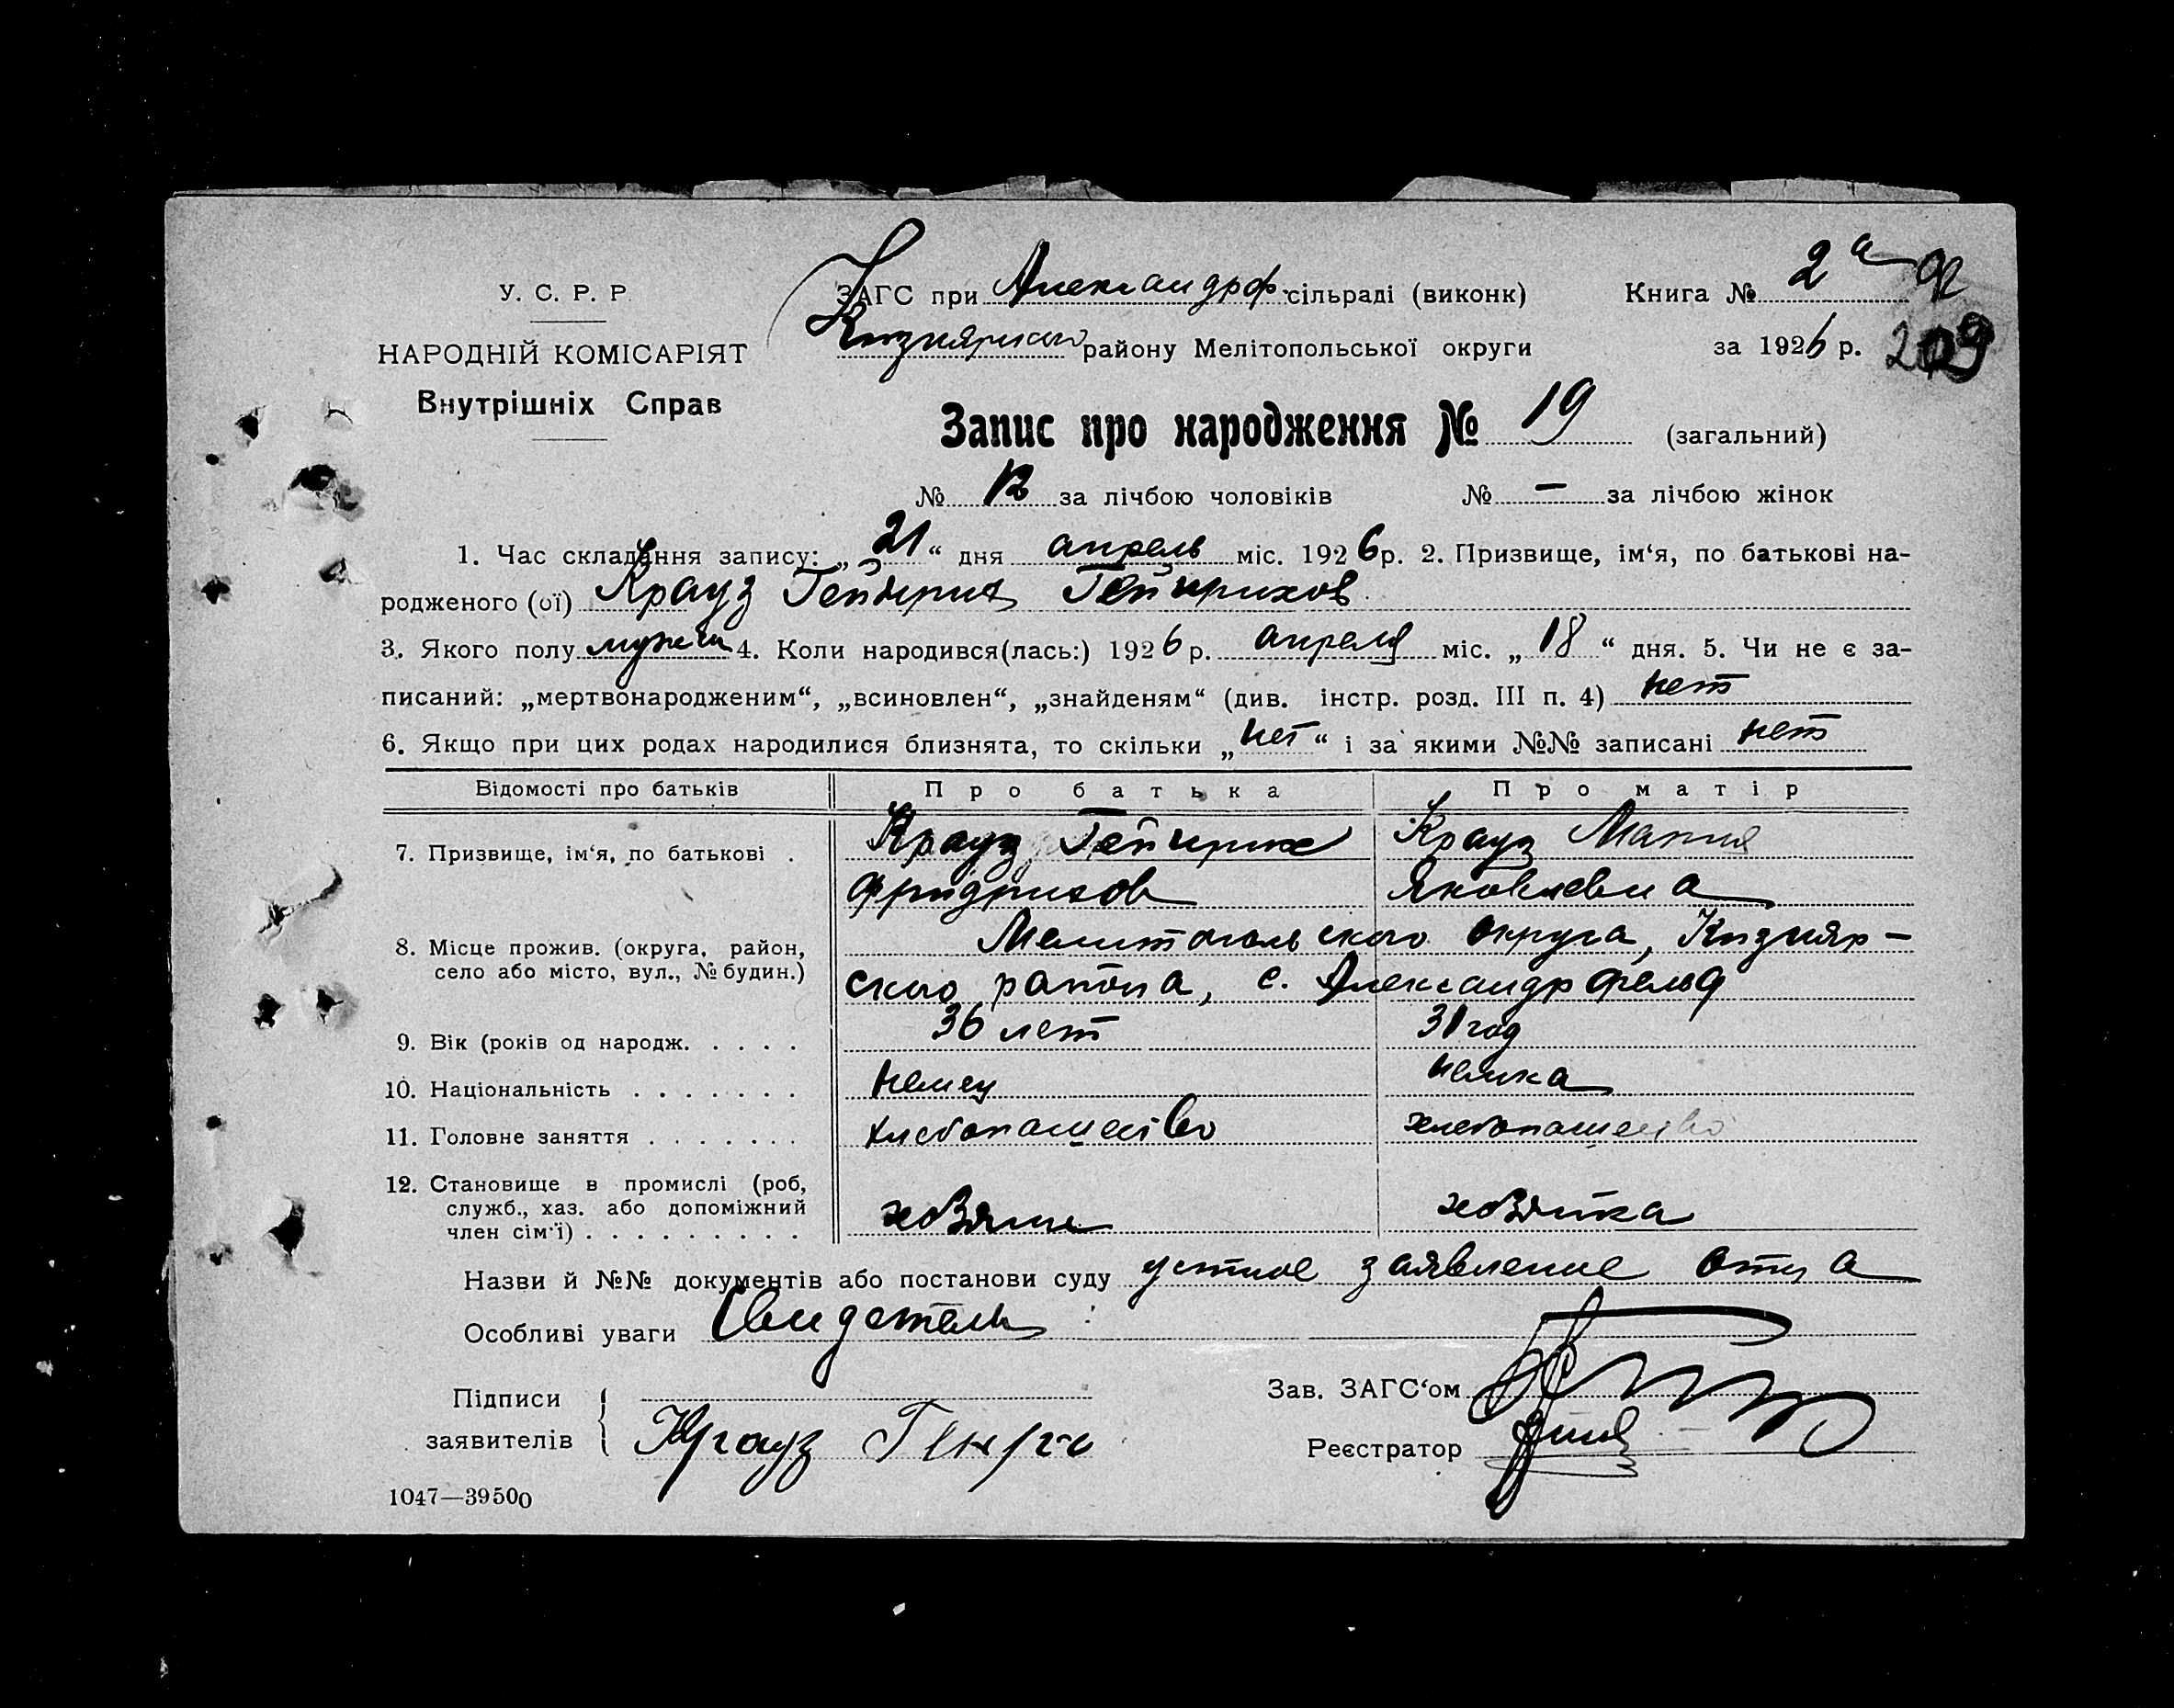 У. С. Р. Р.
НАРОДНІЙ КОМІСАРІЯТ
Внутрішніх Справ
ЗАГС при Александрф. сільраді (виконк)
Кизиярского району Мелітопольської округи
Книга № 2а
за 1926 р.
209
Запис про народження № 19 (загальний)
№ 12 за лічбою чоловіків № — за лічбою жінок
1. Час складання запису: „21“ дня апрель міс. 1926 р. 2. Призвище, ім‘я, по батькові на-
родженого (ої) Крауз Гейнрих Гейнрихов
3. Якого полу мужск 4. Коли народився(лась:) 1926 р. апреля міс. „18“ дня. 5. Чи не є за-
писаний: „мертвонародженим“, „всиновлен“, „знайденям“ (див. інстр. розд. III п. 4) нет
6. Якщо при цих родах народилися близнята, то скільки „нет“ і за якими №№ записані нет
Відомості про батьків Про батька Про матір
7. Призвище, ім‘я, по батькові . Крауз Гейнрих Крауз Мария
Фридрихов Яковлевна
8. Місце прожив. (округа, район, село або місто, вул., № будин.) Мелитопольского округа, Кизияр-
ского района, с. Александрфельд
9. Вік (років од народж. . . . . 36 лет 31 год
10. Національність . . . . . . . немец немка
11. Головне заняття . . . . . . . хлебопашество хлебопашество
12. Становище в промислі (роб,
служб., хаз. або допоміжний
член сім‘ї) . . . . . . . . . хозяин хозяйка
Назви й №№ документів або постанови суду устное заявление отца
Особливі уваги Свидетель:
Підписи
заявителів Крауз Генрги
Зав. ЗАГС‘ом
Реєстратор
1047—39500